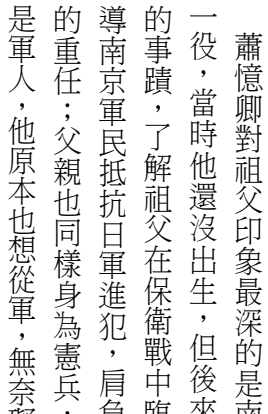 蕭憶卿對祖父印象最深的是南
一役，當時他還沒出生，但後來
的事蹟，了解祖父在保衛戰中臨
導南京軍民抵抗日軍進犯，肩負
的重任；父親也同樣身為憲兵，
是軍人，他原本也想從軍，無奈礙